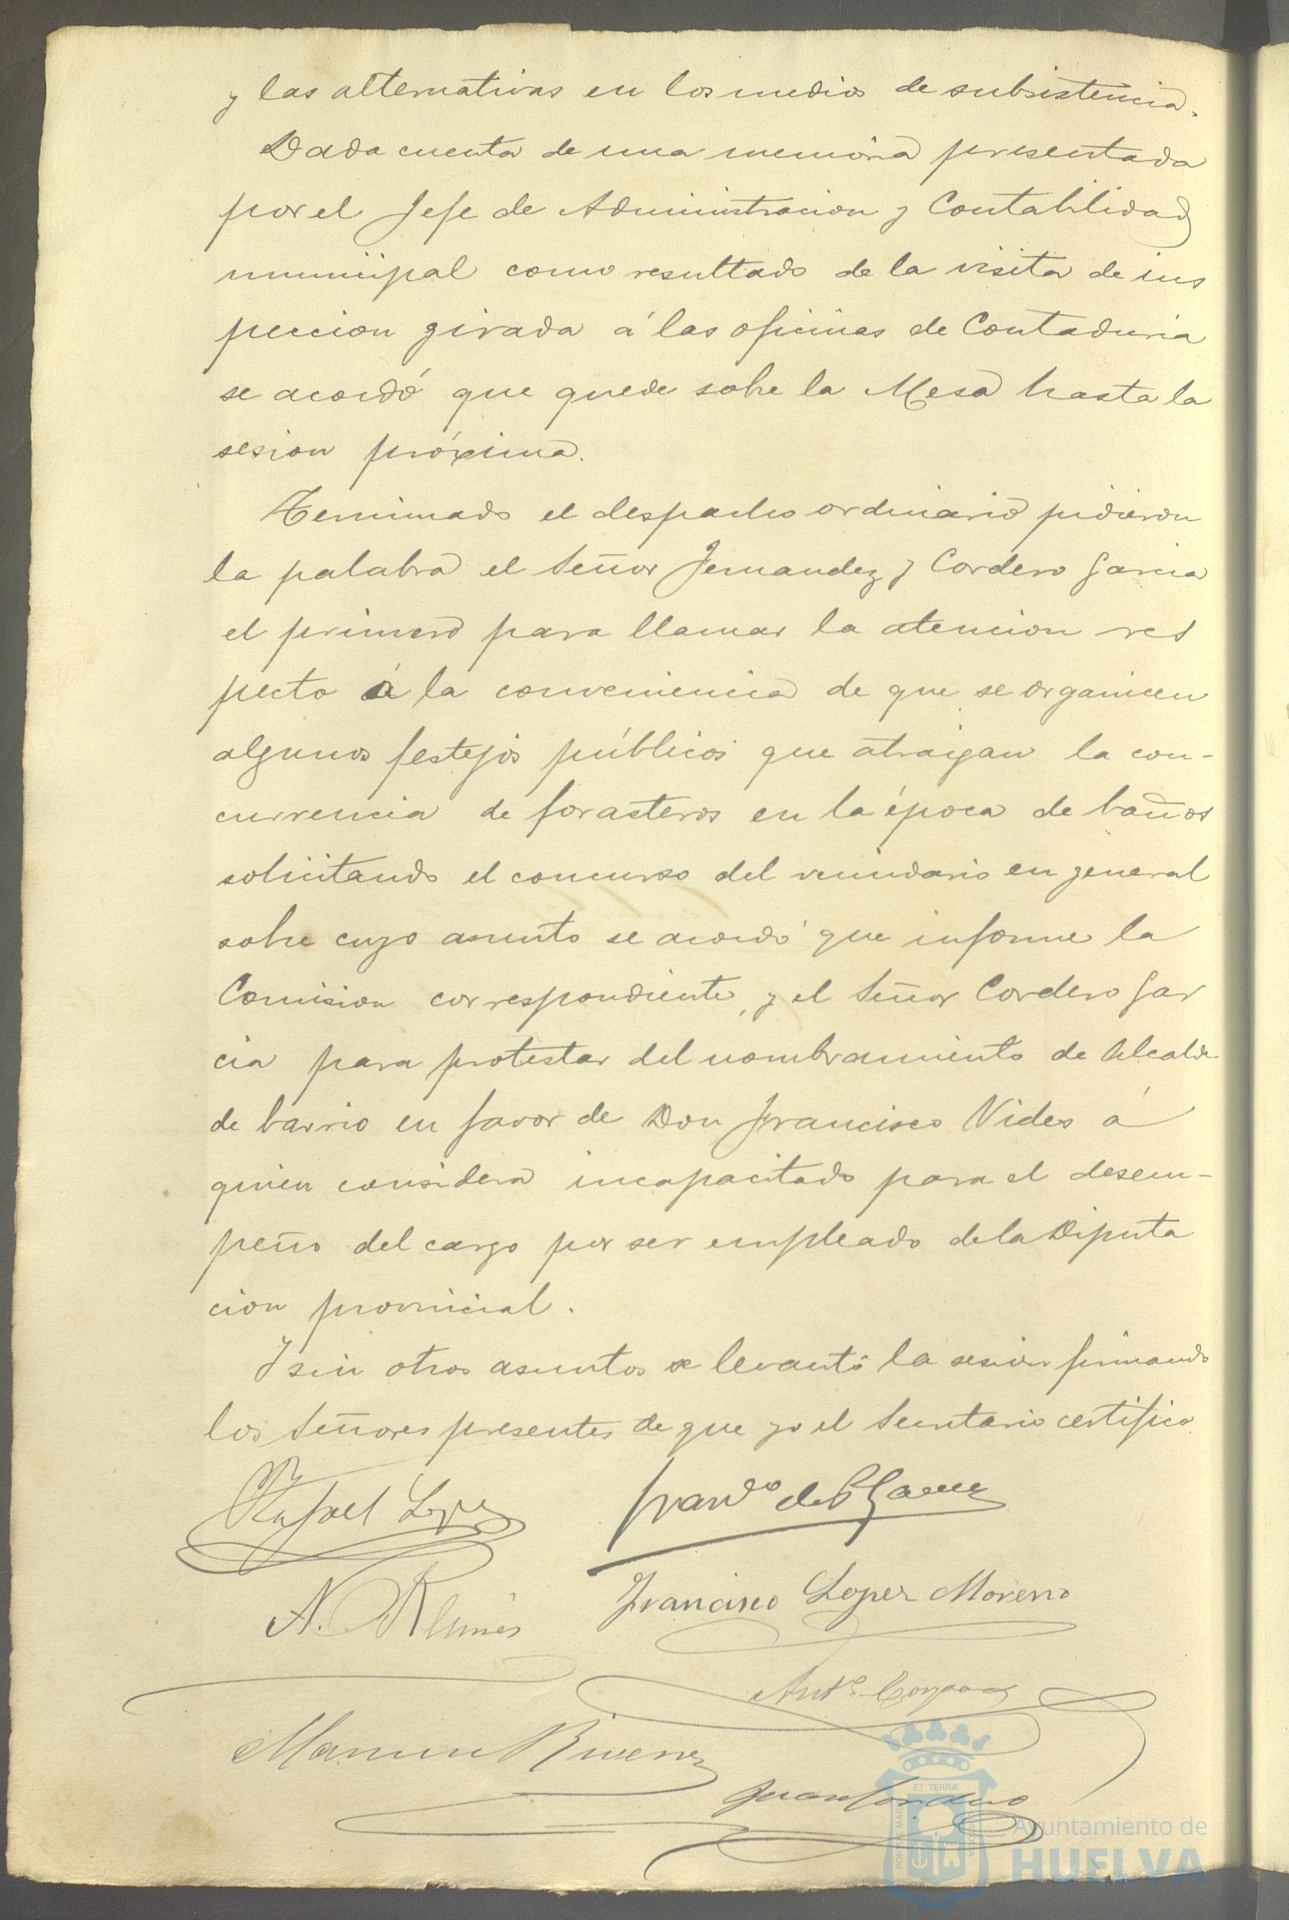 y las alternativas en los medios de subsistencia.
Dada cuenta de una memoria presentada
por el Jefe de Administracion y Contabilidad
municipal como resultado de la visita de ins
peccion girada á las oficinas de Contaduria
se acordó que quede sobre la Mesa hasta la
sesion próxima.
Terminado el despacho ordinario pidieron
la palabra el Señor Fernandez y Cordero Garcia
el primero para llamar la atencion res
pecto á la conveniencia de que se organicen
algunos festejos públicos que atraigan la con-
currencia de forasteros en la época de baños
solicitando el concurso del vecindario en general
sobre cuyo asunto se acordó que informe la
Comision correspondiente, y el Señor Cordero Gar
cia para protestar del nombramiento de Alcalde
de barrio en favor de Don Francisco Vides á
quien considera incapacitado para el desem-
peño del cargo por ser empleado de la Diputa
cion provincial.
Y sin otros asuntos se levantó la sesion firmando
los Señores presentes de que yo el Secretario certifico.
Rafael Lopez
Francisco Lopez Moreno
A.
Manuel
ET TERRÆ
Ayuntamiento de
HUELVA